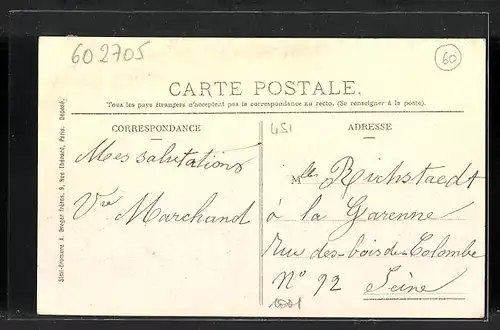 602705
60
CARTE POSTALE.
Tous les pays étrangers n'acceptent pas la correspondance au recto. (Se renseigner à la poste).
CORRESPONDANCE
Mes salutations
Vve Marchand
451
ADRESSE
Mlle Richstaedt
à la Garenne
rue des-bois de Colombe
N° 92 Seine
Simi-Bromure A. Breger frères, 9, Rue Thénard, Paris. Déposé.